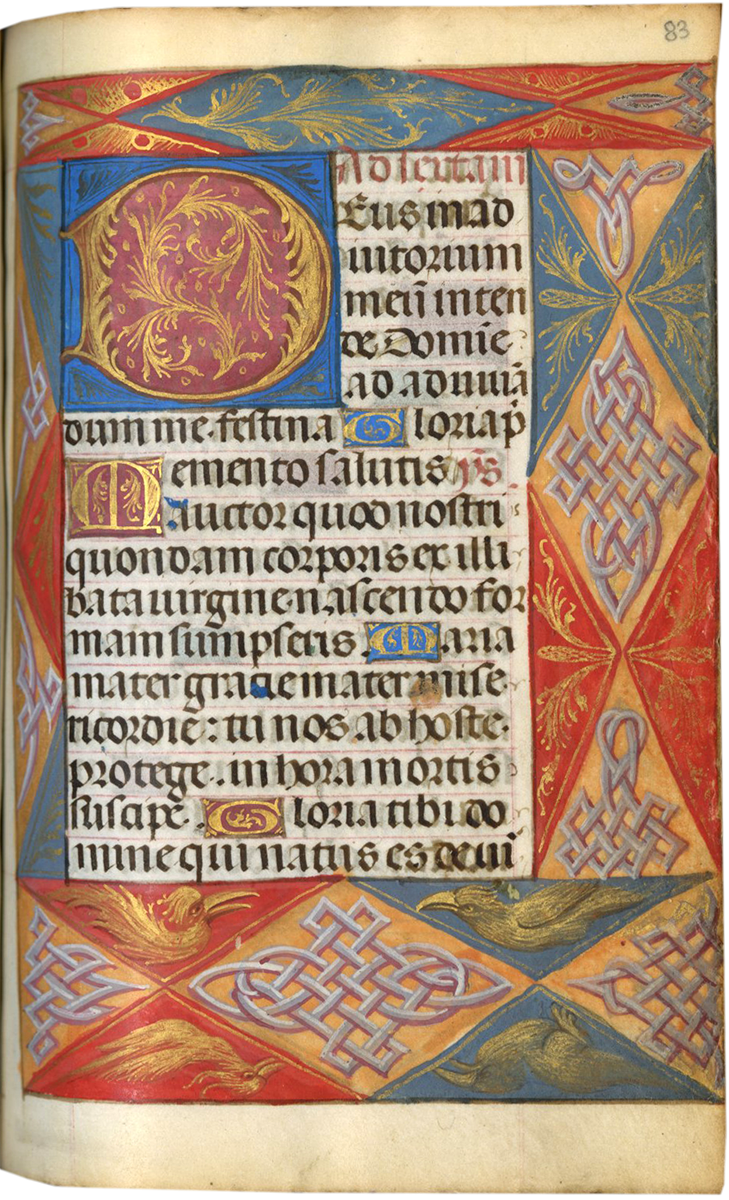 83
Ad sextam
DEus in ad
iutorium
meū inten
de Domīe
ad adiuuā
dum me festina Gloria p̄
Memento salutis ym̄s.
auctor quod nostri
quondam corporis ex illi
bata uirgine nascendo for
mam sumpseris. Maria
mater gracie mater mise
ricordie: tu nos ab hoste
protege. in hora mortis
suscipe. Gloria tibi do
mine qui natus es de uī